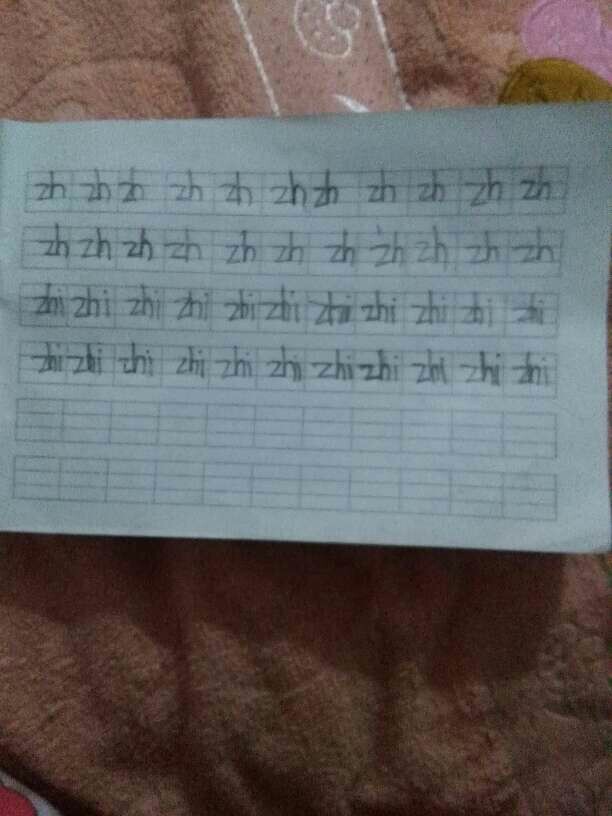 zh zh zh zh zh zh zh zh zh zh zh
zh zh zh zh zh zh zh zh zh zh zh
zhi zhi zhi zhi zhi zhi zhi zhi zhi zhi zhi
zhi zhi zhi zhi zhi zhi zhi zhi zhi zhi zhi